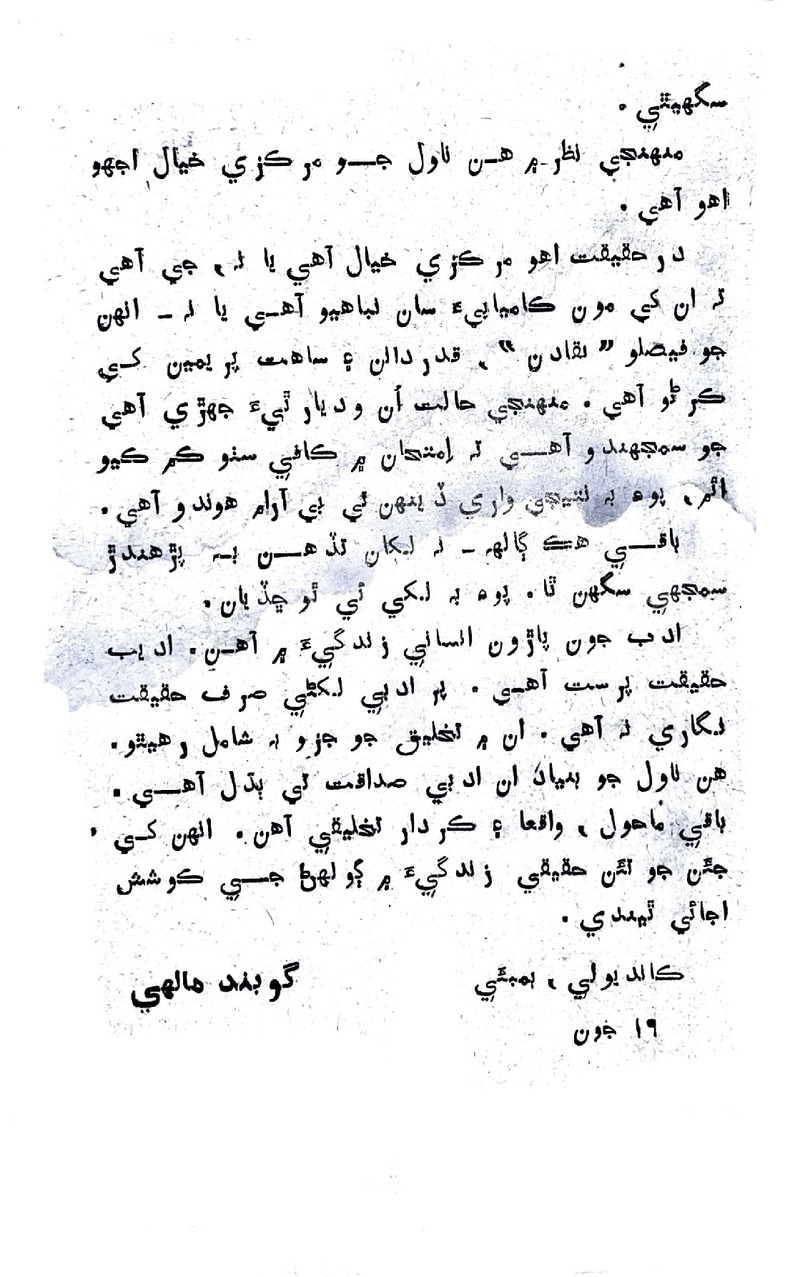 سگهيٿي .
منهنجي نظر ۾ هن ناول جو مرڪزي خيال اجهو
اهو آهي .
درحقيقت اهو مرڪزي خيال آهي يا نه، جي آهي
ته ان کي مون ڪاميابيءَ سان نباهيو آهي يا نہ ــ انهن
جو فيصلو ”نقادن“، قدردانن ۽ ساهت پريمين کي
ڪرڻو آهي . منهنجي حالت اُن وديارٿيءَ جهڙي آهي
جو سمجهندو آهي ته اِمتحان ۾ ڪافي سٺو ڪم ڪيو
اٿم، پوءِ بہ نتيجي واري ڏينهن ئي بي آرام هوندو آهي .
باقي هڪ ڳالهہ ــ نہ لکان تڏهن بہ پڙهندڙ
سمجهي سگهن ٿا . پوءِ بہ لکي ئي ٿو ڇڏيان .
ادب جون پاڙون انساني زندگيءَ ۾ آهن . اديب
حقيقت پرست آهي . پر ادبي لکڻي صرف حقيقت
نگاري نہ آهي . ان ۾ تخليق جو جزو بہ شامل رهيٿو .
هن ناول جو بنياد ان ادبي صداقت تي ٻڌل آهي .
باقي ماحول، واقعا ۽ ڪردار تخليقي آهن . انهن کي
جئن جو تئن حقيقي زندگيءَ ۾ ڳولهڻ جي ڪوشش
اجائي ٿيندي .
ڪانديولي، بمبئي
گوبند مالهي
١٩ جون